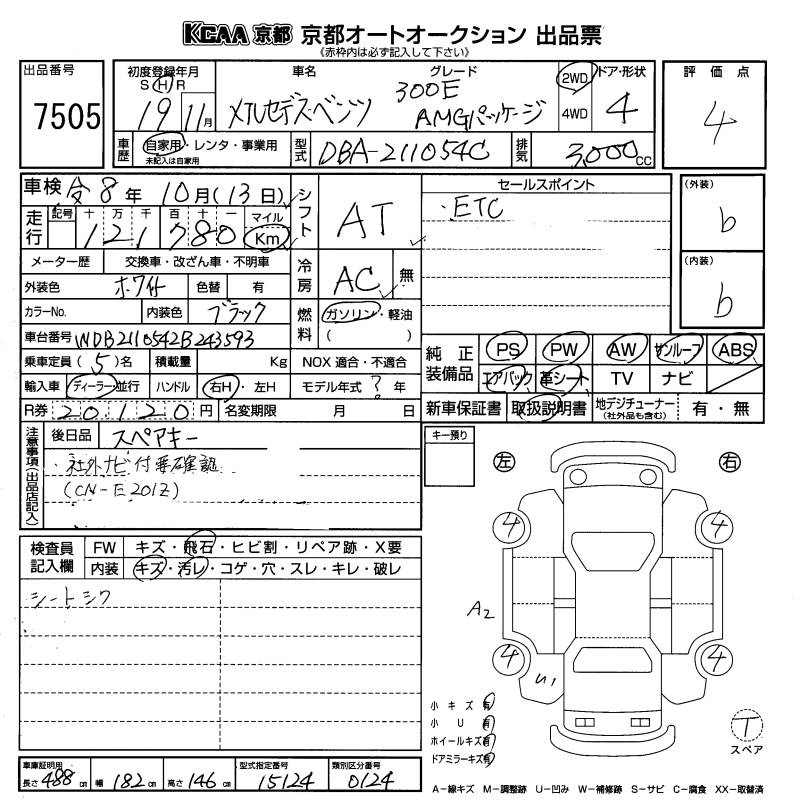 KCAA 京都 京都オートオークション 出品票
《赤枠内は必ず記入して下さい》
出品番号
7505
初度登録年月
S H R
19 11月
車名
メルセデスベンツ
グレード
300E
AMGパッケージ
2WD
4WD
ドア・形状
4
評価点
4
車歴
自家用・レンタ・事業用
未記入は自家用
型式
DBA-211054C
排気
3,000 CC
車検 令8年10月(13日)
シフト
AT
走行
記号 十 万 千 百 十 一
121780
マイル
Km
メーター歴 交換車・改ざん車・不明車
冷房
AC
無
外装色 ホワイト 色替 有
カラーNo. 内装色 ブラック
燃料
ガソリン・軽油
( )
車台番号 WDB2110542B243593
乗車定員(5)名 積載量 Kg NOX 適合・不適合
輸入車 ディーラー 並行 ハンドル 右H・左H モデル年式 ? 年
R券 20,120 円 名変期限 月 日
セールスポイント
・ETC
(外装)
b
(内装)
b
純正装備品
PS PW AW サンルーフ ABS
エアバック 革シート TV ナビ
新車保証書 取扱説明書 地デジチューナー(社外品も含む) 有・無
注意事項(出品店記入)
後日品 スペアキー
・社外ナビ付要確認
(CN-E201Z)
キー預り
左
右
4
4
A2
4
4
U1
検査員記入欄
FW キズ・飛石・ヒビ割・リペア跡・X要
内装 キズ・汚レ・コゲ・穴・スレ・キレ・破レ
シートシワ
小キズ有
小U有
ホイールキズ有
ドアミラーキズ有
T
スペア
車庫証明用
長さ 488 cm 幅 182 cm 高さ 146 cm
型式指定番号
15124
類別区分番号
0124
A-線キズ M-調整跡 U-凹み W-補修跡 S-サビ C-腐食 XX-取替済